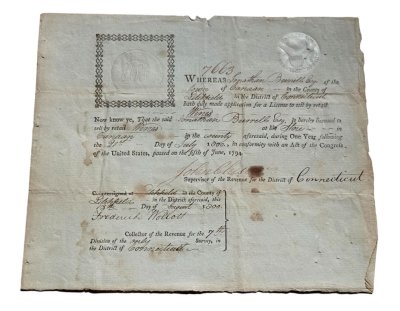 7663
WHEREAS Jonathan Burrell Esq. of the
Town of Canaan in the County of
Litchfield in the District of Connecticut
hath duly made application for a License to sell by retail
Wines
Now know ye, That the said Jonathan Burrell Esq. is hereby licensed to
sell by retail Wines at his Store in
Canaan in the county aforesaid, during One Year following
the 21st Day of July 1800, in conformity with an Act of the Congress
of the United States, passed on the fifth of June, 1794.
John
Supervisor of the Revenue for the District of Connecticut
Countersigned at Litchfield in the County of
Litchfield in the District aforesaid, this
Day of August 1800.
Frederick Wolcott
Collector of the Revenue for the 7th
Division of the only Survey, in
the District of Connecticut